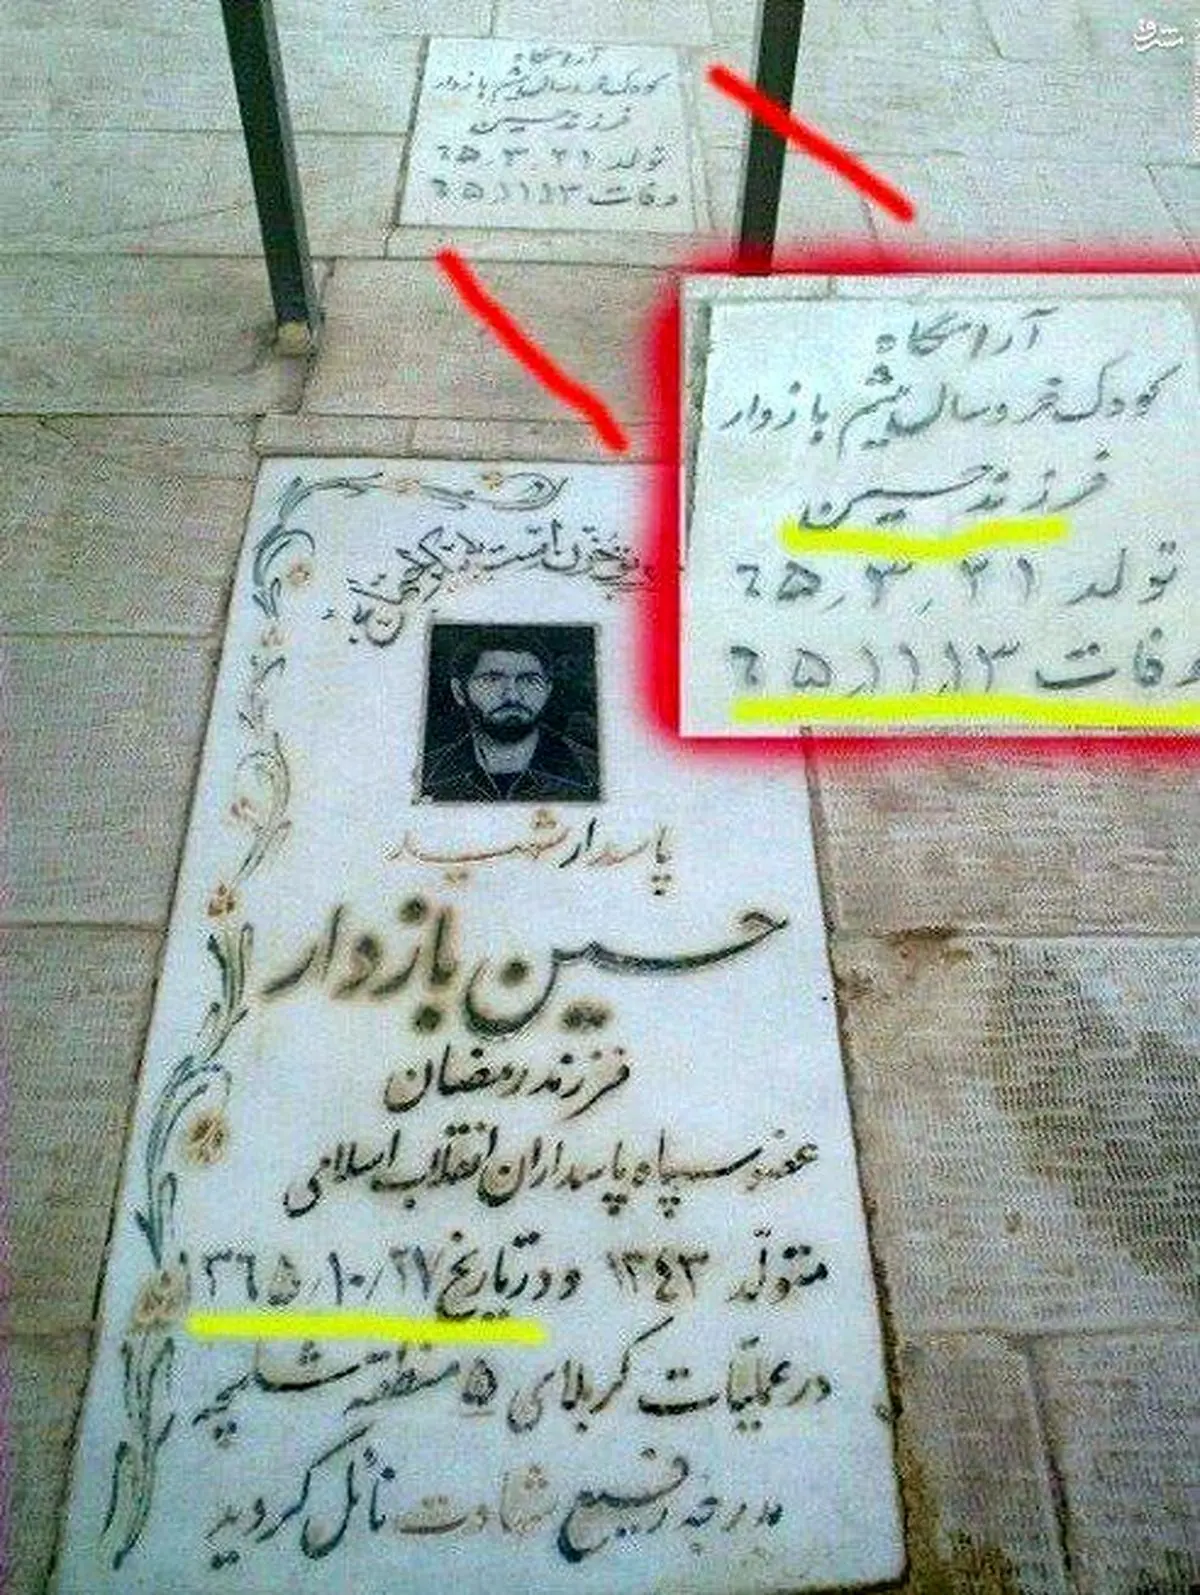 مشرق
آرامگاه
کودک خردسال میثم بازوار
فرزند حسین
تولد ۶۵٫۳٫۲۱
وفات ۶۵٫۱۱٫۱۳
آرامگاه
کودک خردسال میثم بازوار
فرزند حسین
تولد ۶۵٫۳٫۲۱
وفات ۶۵٫۱۱٫۱۳
پاسدار شهید
حسین بازدار
فرزند رمضان
عضو سپاه پاسداران انقلاب اسلامی
متولّد ۱۳۴۳ و در تاریخ ۳۶۵٫۱۰٫۲۷
در عملیّات کربلای ۵ منطقه شلمچه
بدرجه رفیع شهادت نائل گردید